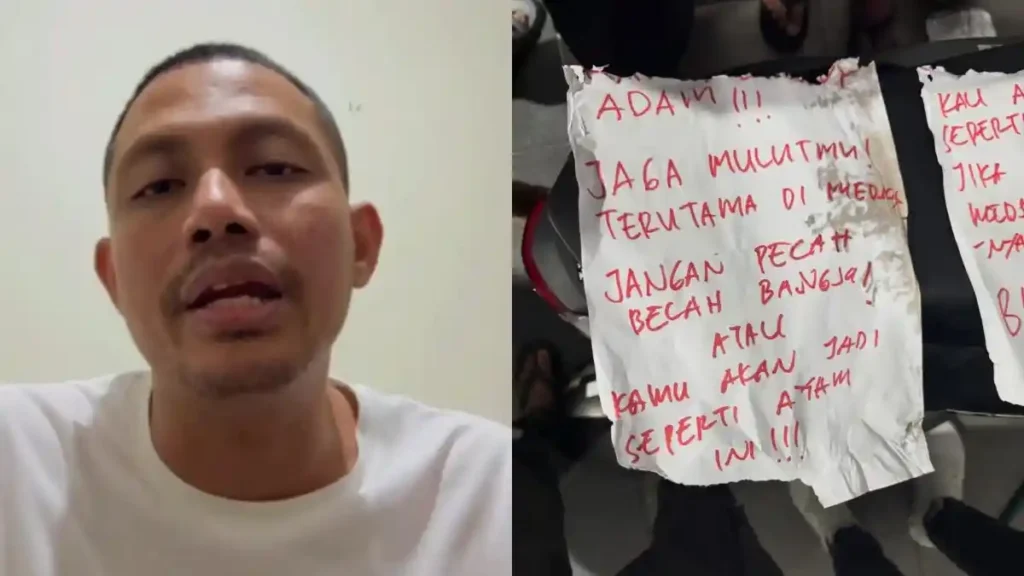 ADAM !!!
JAGA MULUTMU!
TERUTAMA DI
JANGAN PECAH
BECAH BANGSA!
ATAU
KAMU AKAN JADI
SEPERTI AYAM
INI !!!
KAU A
SEPERTI
JIKA